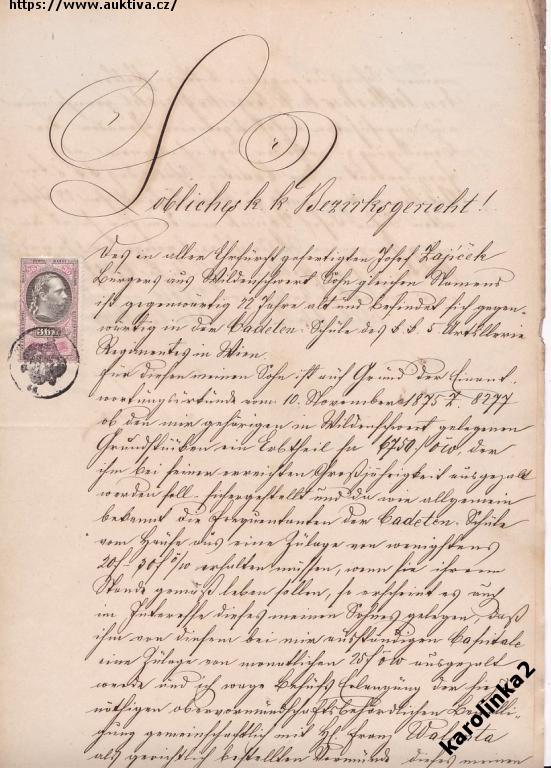 https://www.auktiva.cz/
Löbliches k. k. Bezirksgericht!
Des in aller Ehrfurcht gefertigten Josef Zajíček
Bürgers aus Wildenschwert Sohn gleichen Namens
ist gegenwärtig 22 Jahre alt und befindet sich gegen-
wärtig in der Cadeten-Schule des k. k. 5 Artillerie
Regimentes in Wien.
Für diesen meinen Sohn ist auf Grund der Einant-
wortungsurkunde vom 10. November 1875 Z. 8277
ob den mir gehörigen in Wildenschwert gelegenen
Grundstücken ein Erbtheil 6750 f öW, der
ihm bei seiner erreichten Großjährigkeit ausgezalt
werden soll, sichergestellt und da wie allgemein
bekannt die Frequentanten der Cadeten-Schule
vom Hause aus eine Zulage von wenigstens
20 f - 30 f erhalten müssen, wenn sie ihrem
Stande gemäß leben sollen, so erscheint es auch
im Interesse dieses meinen Sohnes gelegen, daß
ihm von diesem bei mir aushaftenden Capitale
eine Zulage von monatlichen 25 f öW ausgezalt
werde und ich wage behufs Erlangung der hiezu
nöthigen obervormundschaftsbehördlichen Bewilli-
gung gemeinschaftlich mit H. Franz
als gerichtlich bestellten Vormunde dieses meinen
karolinka2